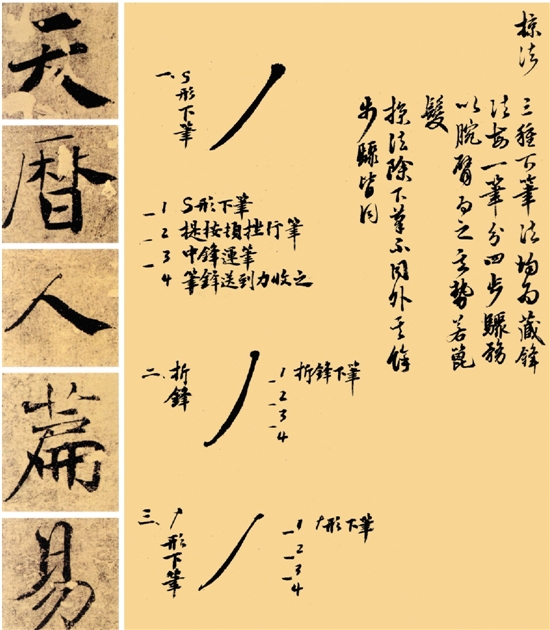 掠法
三種下筆法均為藏鋒
法每一筆分四步驟務
以腕臂為之其勢若篦
髮
掠法除下筆不同外其餘
步驟皆同
一、S形下筆
1 S形下筆
2 提按頓挫行筆
3 中鋒運筆
4 筆鋒送到力收之
二、折鋒
1 折鋒下筆
2
3
4
三、形下筆
1 形下筆
2
3
4
天
曆
人
篇
易